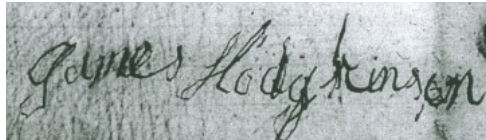 James Hodgkinson